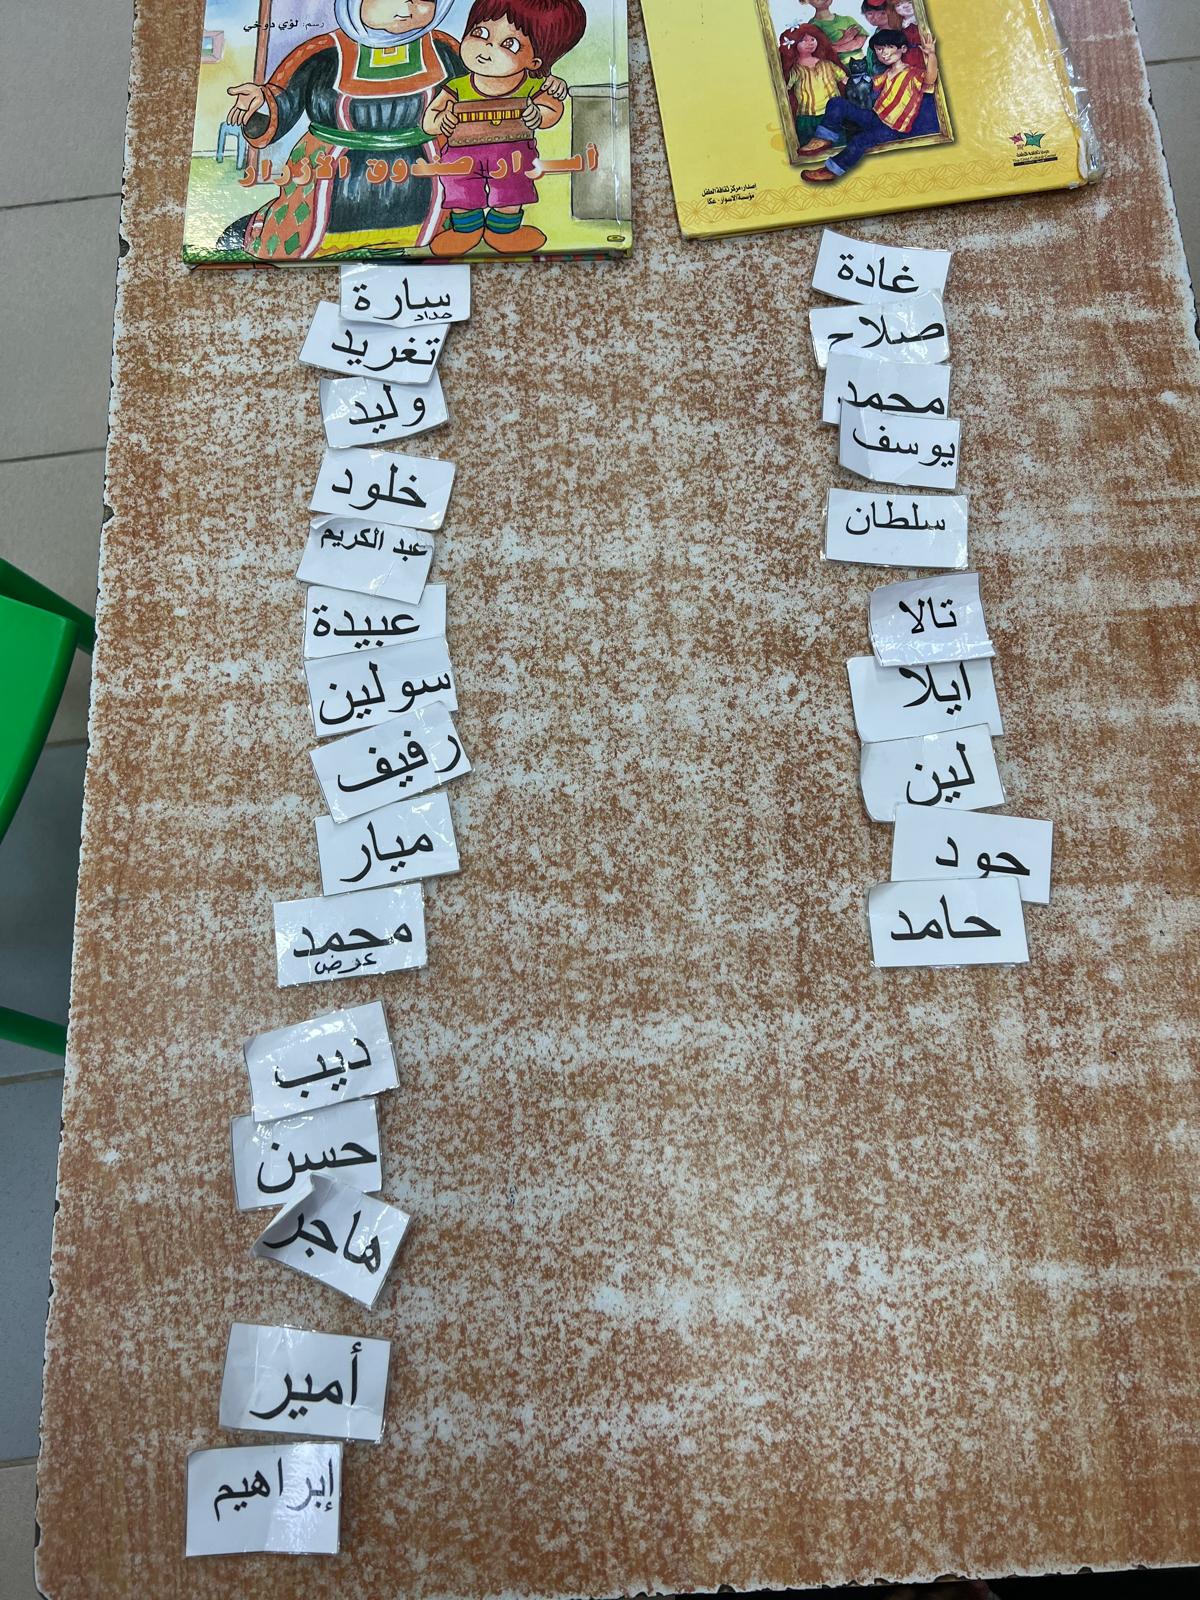 رسم: لؤي دوخي
أسرار صندوق الأزرار
إصدار: مركز ثقافة الطفل
مؤسسة الأسوار - عكا
سارة
حداد
تغريد
وليد
خلود
عبد الكريم
عبيدة
سولين
رفيف
ميار
محمد
عرض
ديب
حسن
هاجر
أمير
إبراهيم
غادة
صلاح
محمد
يوسف
سلطان
تالا
ايلا
لين
جود
حامد